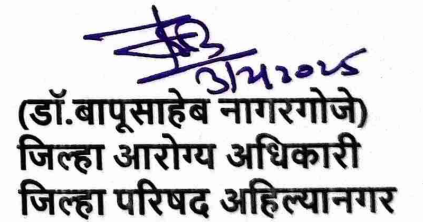 (डॉ.बापूसाहेब नागरगोजे)
जिल्हा आरोग्य अधिकारी
जिल्हा परिषद अहिल्यानगर